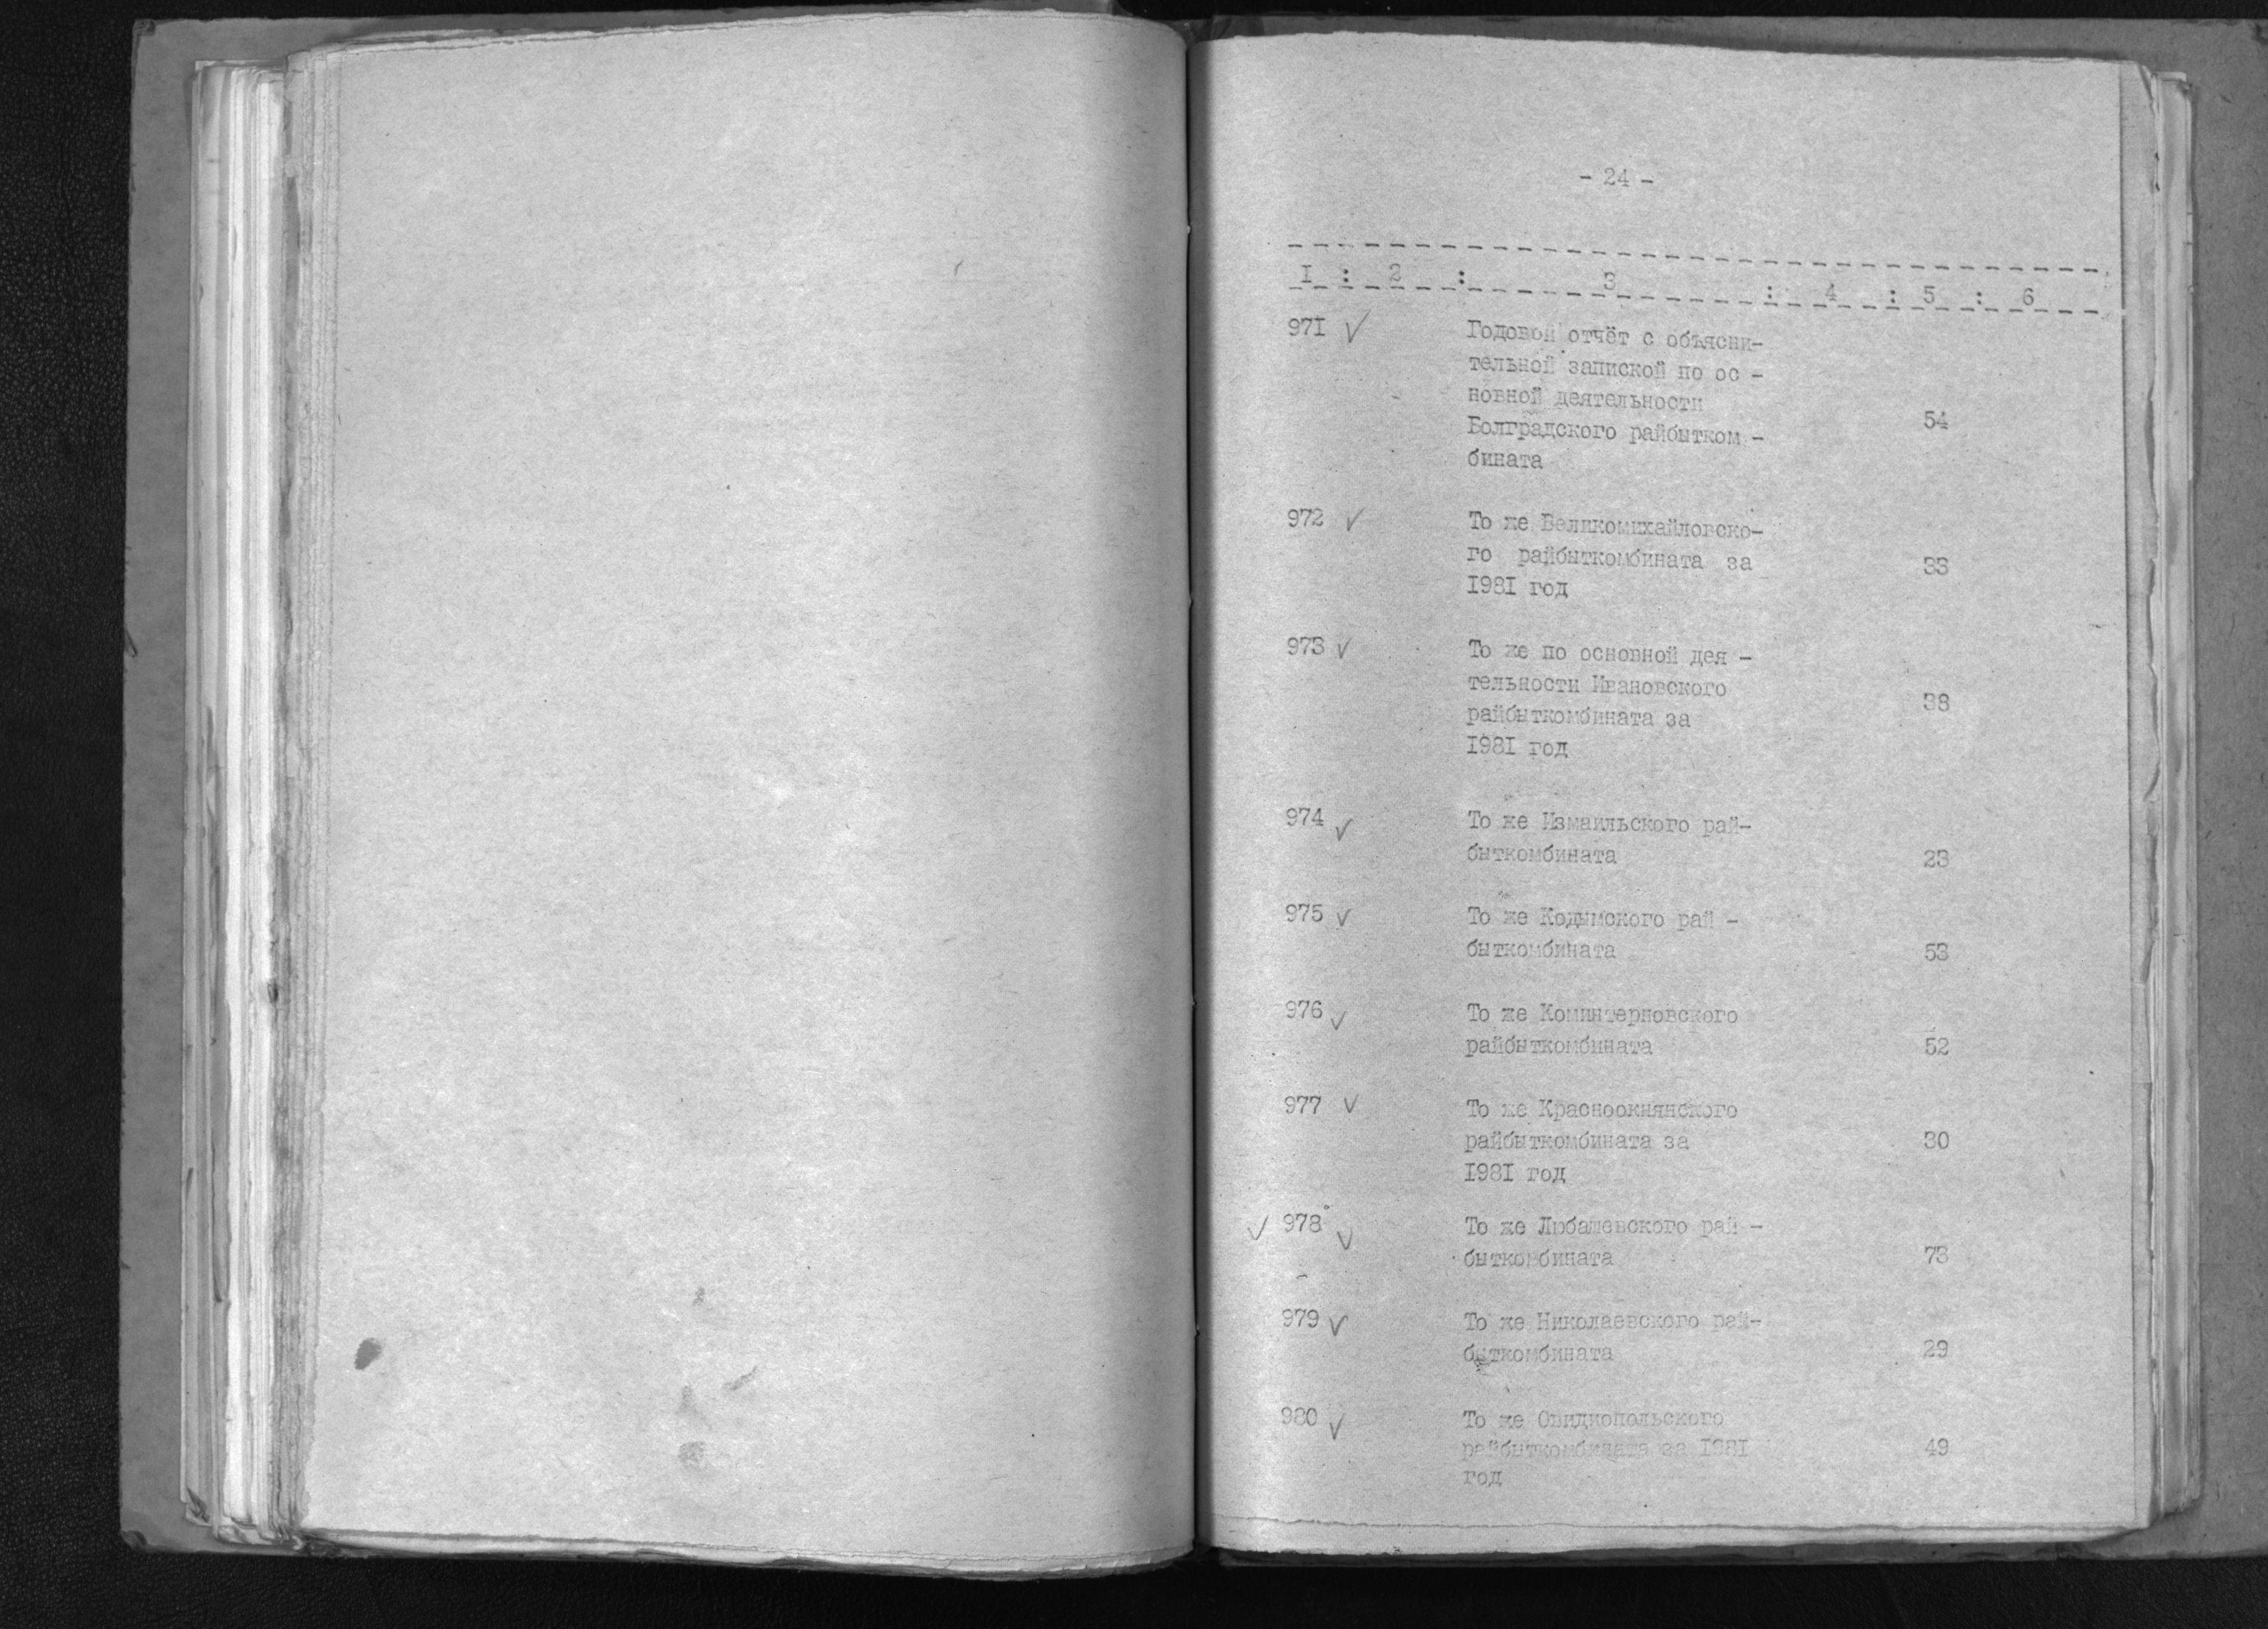 - 24 -
I : 2 : 3 : 4 : 5 : 6
971 √ Годовой отчёт с объясни-
тельной запиской по ос -
новной деятельности
Болградского райбытком - 54
бината
972 √ То же Великомихайловско-
го райбыткомбината за 33
I98I год
973 √ То же по основной дея -
тельности Ивановского
райбыткомбината за 38
I98I год
974 √ То же Измаильского рай-
быткомбината 23
975 √ То же Кодымского рай -
быткомбината 53
976 √ То же Коминтерновского
райбыткомбината 52
977 √ То же Красноокнянского
райбыткомбината за 30
I98I год
√ 978 √ То же Любашевского рай -
быткомбината 73
979 √ То же Николаевского рай-
быткомбината 29
980 √ То же Овидиопольского
райбыткомбината за I98I 49
год